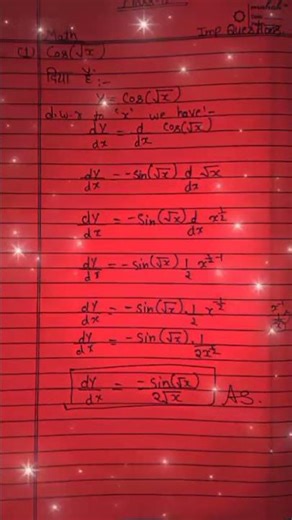 Math
Imp Questions
(1) Cos(√x)
दिया है:-
y = cos(√x)
d.w.r to 'x' we have:-
dy/dx = d/dx cos(√x)
dy/dx = -sin(√x) d/dx √x
dy/dx = -sin(√x) d/dx x^(1/2)
dy/dx = -sin(√x) 1/2 x^(1/2-1)
dy/dx = -sin(√x).1/2 x^(-1/2)
dy/dx = -sin(√x).1/2x^(1/2)
dy/dx = -sin(√x)/2√x AS.